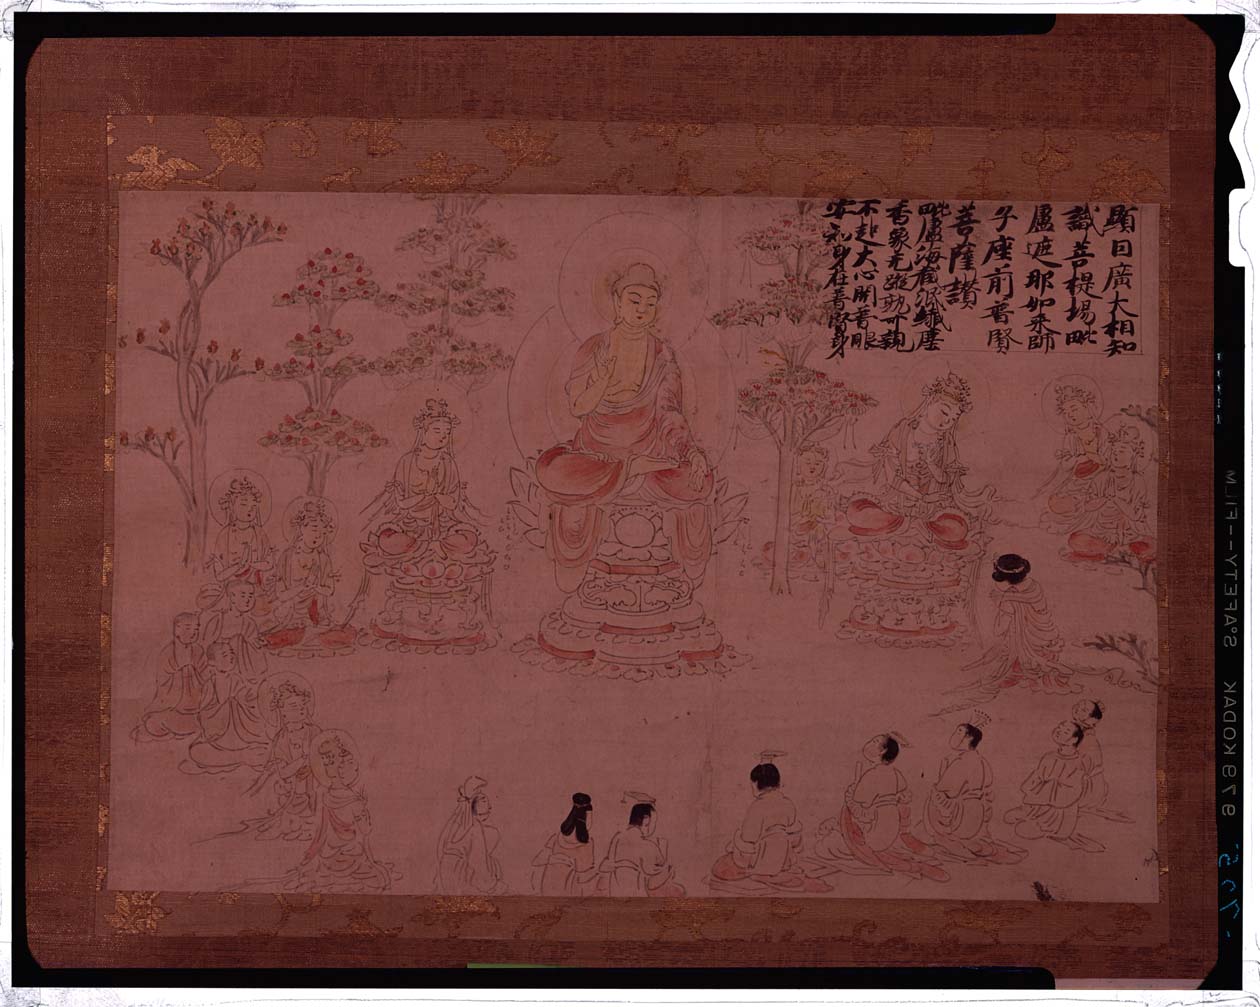 顯曰廣大相知
識菩提場毗
盧遮那如来師
子座前普賢
菩薩讃
毗盧海藏泯纖塵
香象无蹤孰可親
不起大心開普眼
安知身在普賢身
KODAK SAFETY FILM